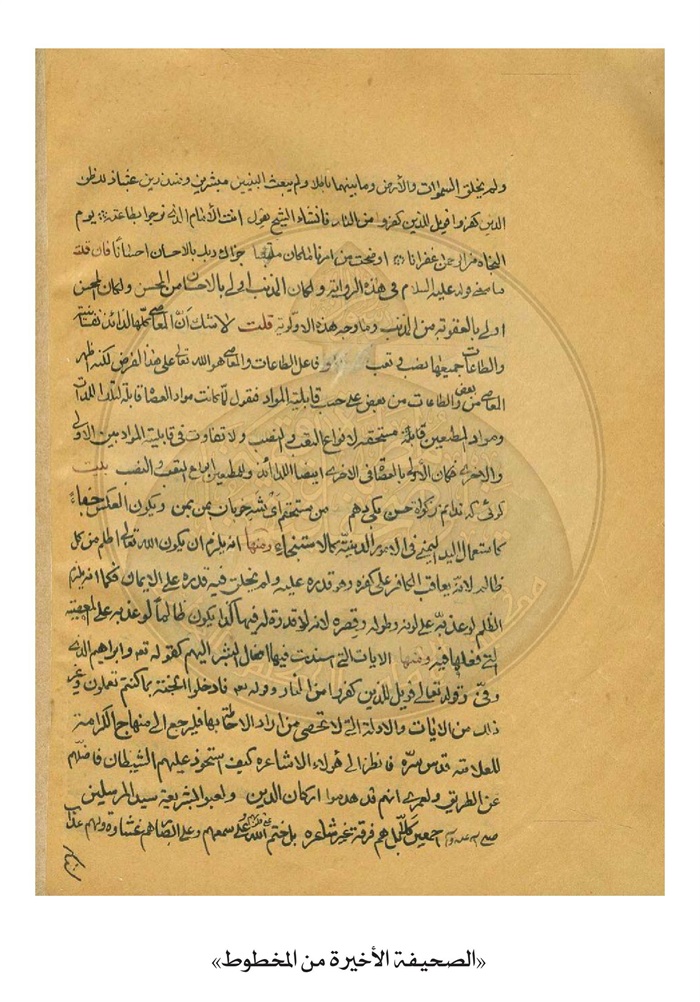 ولم يخلق السموات والأرض وما بينهما باطلا ولم يبعث النبيين مبشرين ومنذرين عبثا ذلك ظن
الذين كفروا فويل للذين كفروا من النار فانشاء الشيخ يقول انت الأمام الذي نرجوا بطاعته يوم
النجاة من الرحمن غفرانا اوضحت من امرنا ما كان ملتبسا جزاك ربك بالاحسان احسانا فان قلت
ما معنى قوله عليه السلام في هذه الرواية ولكان المذنب اولى بالاحسان من المحسن ولكان المحسن
اولى بالعقوبة من المذنب وما وجه هذه الاولوية قلت لا شك أن المعاصي كلها لذائذ نفسانية
والطاعات جميعها نصب وتعب وفاعل الطاعات والمعاصي هو الله تعالى على هذا الفرض لكنه اظهر
المعاصي من بعض والطاعات من بعض على حسب قابلية المواد فنقول لما كانت مواد العصاة قابلة لتلك اللذات
ومواد المطيعين قابلة مستحقة لانواع التعب والنصب ولا تفاوت في قابلية المواد بين الاولى
والاخرى فكان الاولى بالعصاة في الاخرى ايضا اللذائذ وللمطيعين انواع التعب والنصب بيت
حسن من مستحقم ويكون العكس جفاء
كاستعمال اليد اليمنى في الامور الدنيّة كالاستنجاء ومنها انه يلزم ان يكون الله تعالى اظلم من كل
ظالم لانه يعاقب الكافر على كفره وهو قدره عليه ولم يخلق فيه قدرة على الايمان فكما انه يلزم
الظلم لو عذبه على لونه وطوله وقصره لانه لا قدرة له فيها كذا يكون ظالما لو عذبه على المعصية
التي فعلها فيه ومنها الايات التي اسندت فيها افعال البشر اليهم كقوله تعه وابراهيم الذي
وفىّ وقوله تعالى فويل للذين كفروا من النار وقوله تعه فادخلوا الجنة بما كنتم تعملون وغير
ذلك من الايات والادلة التي لا تحصى من اراد الاحاطة بها فليرجع الى منهاج الكرامة
للعلامة قدس سره فانظر الى هؤلاء الاشاعره كيف استحوذ عليهم الشيطان فاضلهم
عن الطريق ولعمري انهم قد هدموا اركان الدين ولعبوا بشريعة سيد المرسلين
صلى الله عليه وآله اجمعين كلا بل هم فرقة غير شاعره بل ختم الله على قلوبهم وعلى سمعهم وعلى ابصارهم غشاوة ولهم عذاب
«الصحيفة الأخيرة من المخطوط»